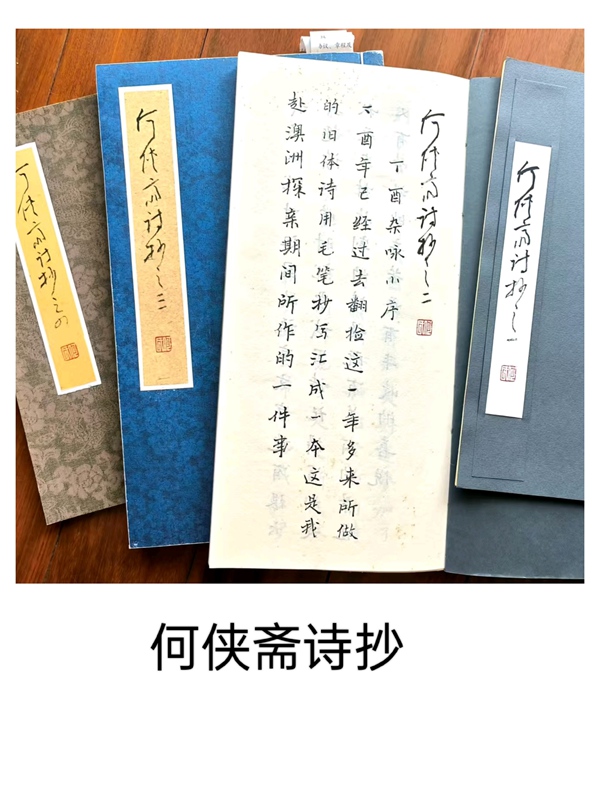 何侠斋诗抄之一
何侠斋诗抄之二
丁酉杂咏小序
丁酉年已经过去翻捡这一年多来所做
的旧体诗用毛笔抄写汇成一本这是我
赴澳洲探亲期间所作的一件事
何侠斋诗抄之三
何侠斋诗抄之四
何侠斋诗抄